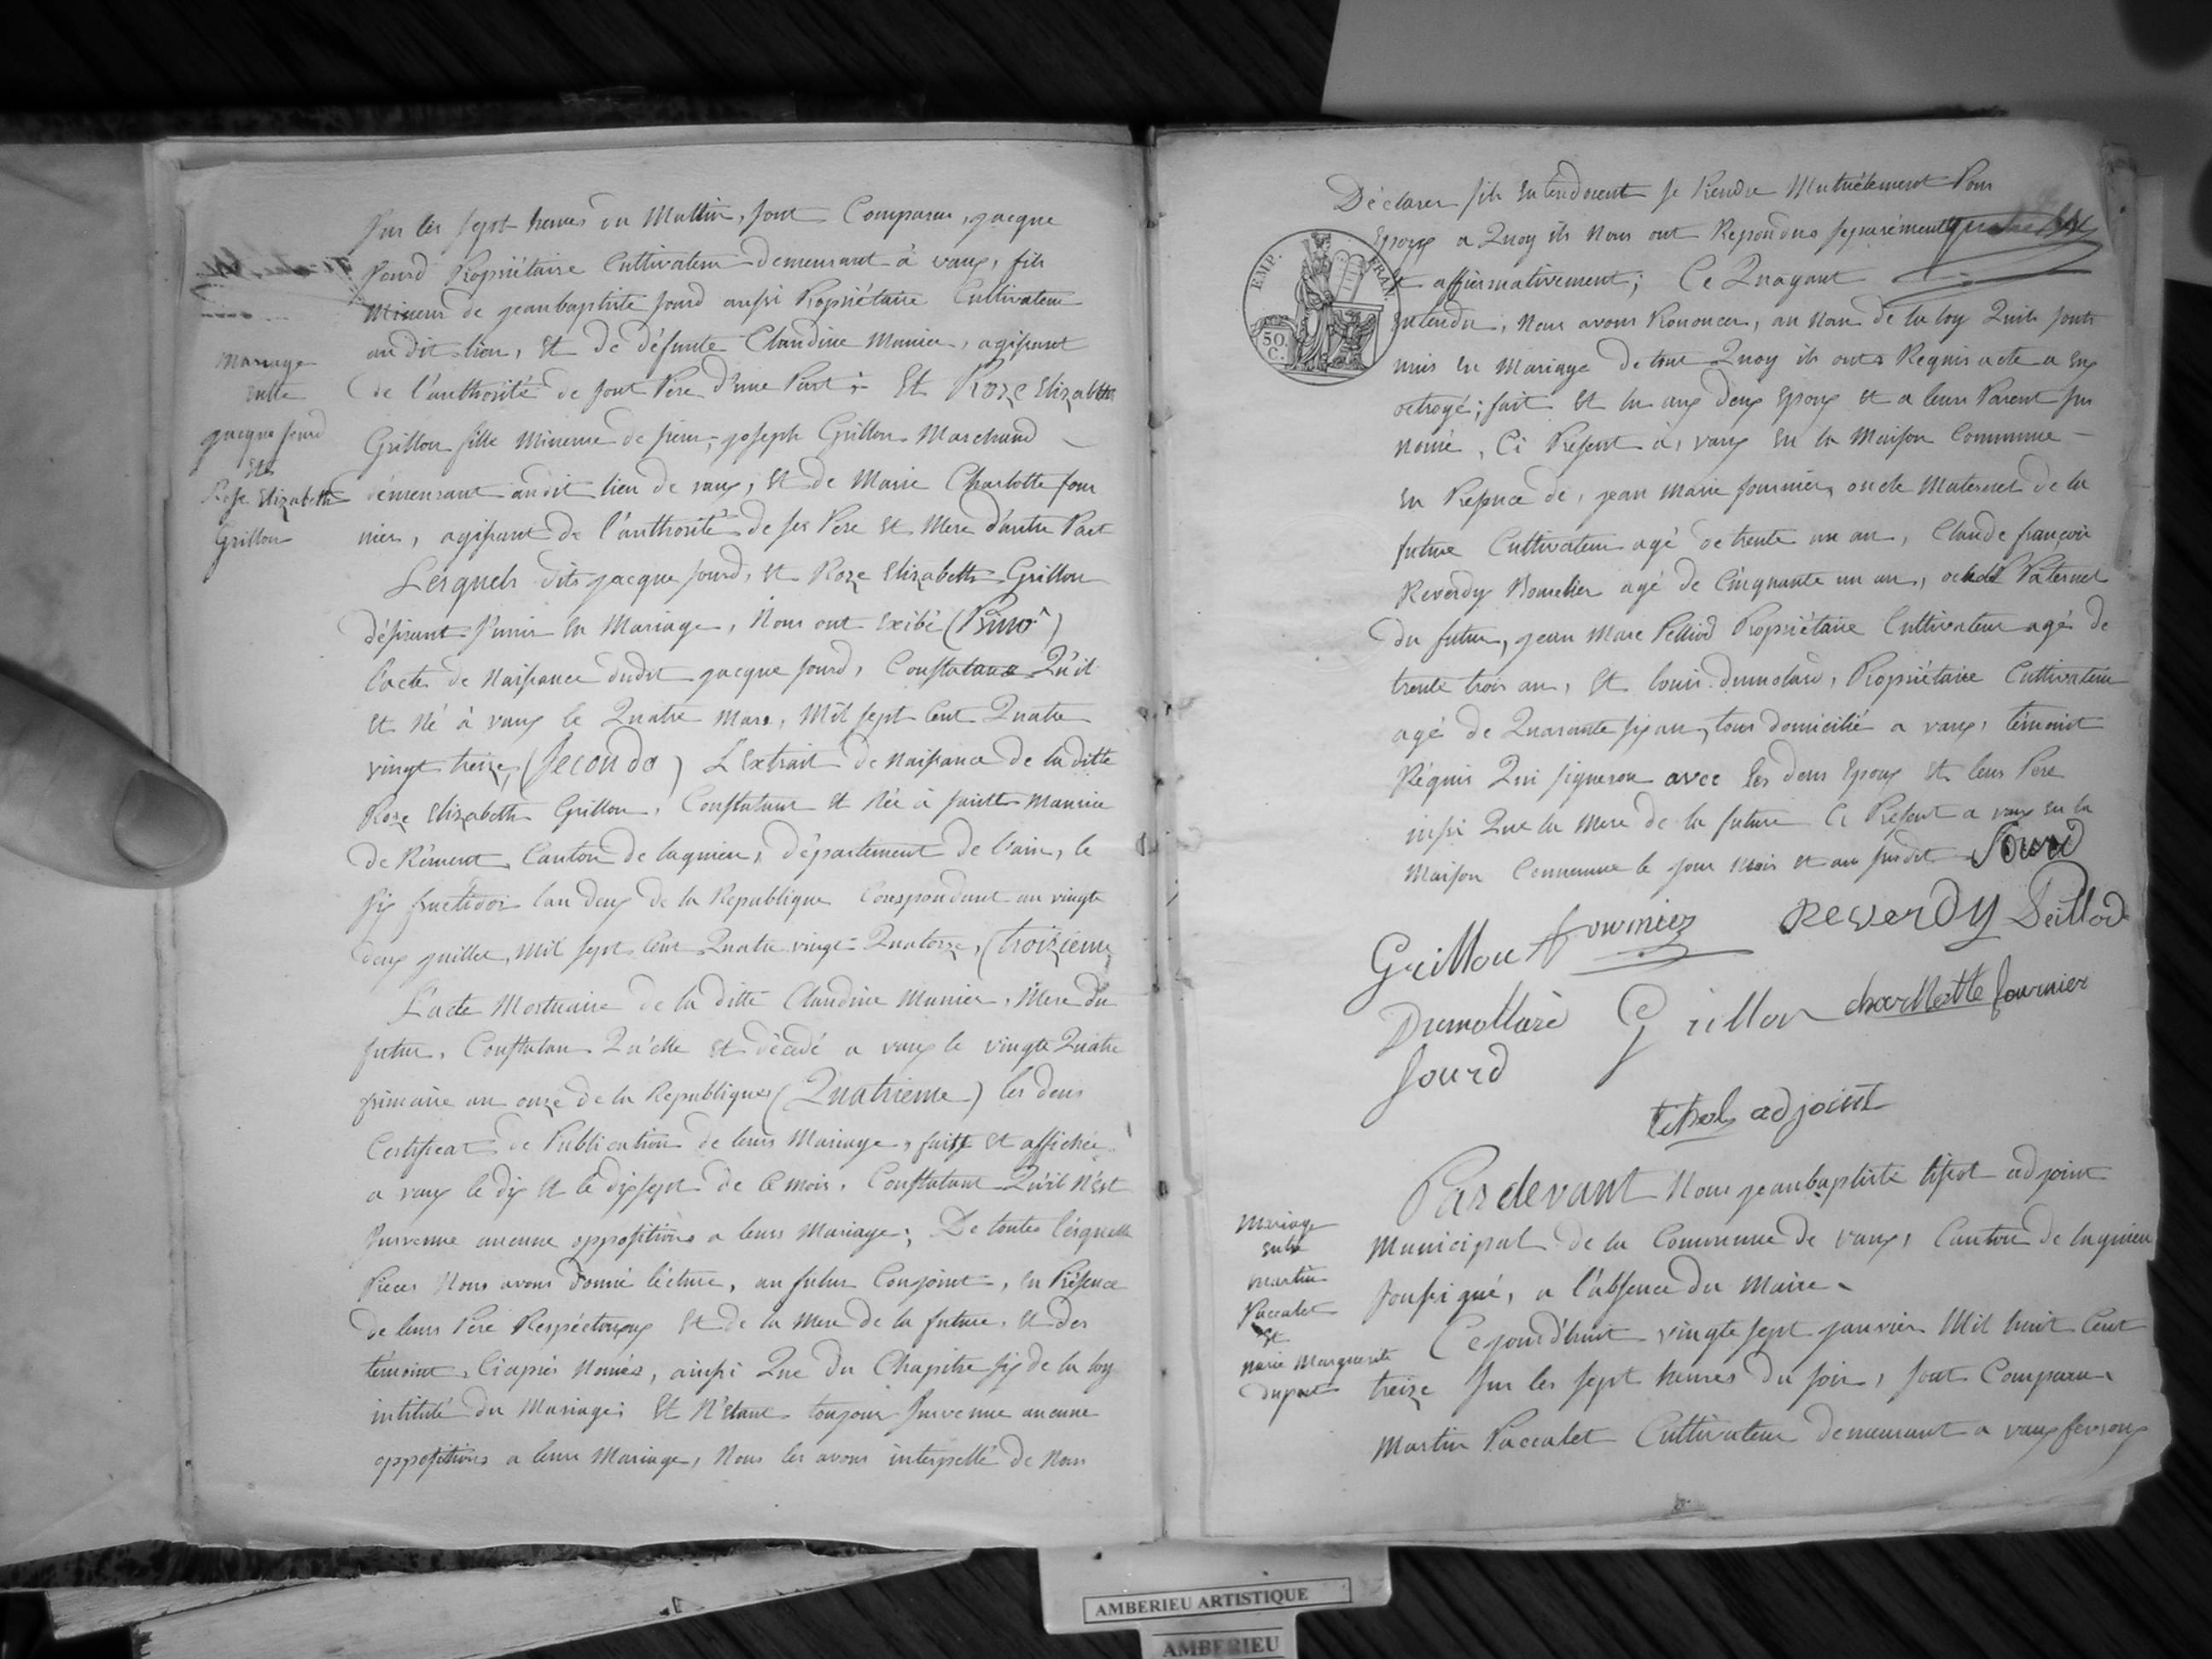 Sur les sept heures du Mattin, sont Comparus, jacque
Sourd Propriétaire Cultivateur demeurant à vaux, fils
Mineur de jeanbaptiste Sourd aussi Propriétaire Cultivateur
au dit lieu, Et de défunte Claudine Munier, agissant
de l'authorité de sont Père d'une Part; Et Roze Elizabeth
Grillon fille Mineure de sieur, joseph Grillon Marchand
demeurant audit lieu de vaux, Et de Marie Charlotte four
nier, agissant de l'authorité de ses Pere Et Mere d'autre Part
Lesquels dits jacque sourd, Et Roze Elizabeth Grillon
désirant s'unir En Mariage, Nous ont Exibé (Primo)
l'acte de Naissance dudit jacque sourd, Constatant Qu'il
Et Né à vaux le Quatre Mars, Mil sept Cent Quatre
vingt treize, (Secondo) L'Extrait de Naissance de la ditte
Roze Elizabeth Grillon, Constatant Et Née à saintt Maurice
de Rément, Canton de lagnieu, département de l'ain, le
six fructidor l'an deux de la Republique Corespondant au vingt
deux juillet, Mil sept Cent Quatre vingt=Quatorze, (troizieme
L'acte Mortuaire de la ditte Claudine Munier, Mere du
futur, Constatan Qu'elle Et décédé a vaux le vingte Quatre
frimaire an onze de la Republique, (Quatrieme) les deux
Certificat de Publication de leurs Mariage, faitt Et affichée
a vaux le dix Et le dixsept de Ce mois, Constatant Qu'il N'Est
survenue aucune oppositions a leurs Mariage; De toutes lésquelle
Pièces Nous avons donné lécture, au futur Conjoint, En Présence
de leurs Pere Respéctueux Et de la Mere de la future, Et des
témoint, Ciaprès Només, ainssi Que du Chapitre six de la loy
intitulé du Mariage; Et N'étant toujour survenue aucune
oppositions a leurs Mariage, Nous les avons interpellé de Nous
Mariage
entre
jacque sourd
Et
Rose Elizabeth
Grillon
Déclarer s'ils Entendoient se Prendre Mutuélement Pour
Epoux a Quoy ils Nous ont Repondus séparément
Et affiermativement; Ce Quayant
Entendu, Nous avons Prononcer, au Nom de la loy Quils sont
unis En Mariage De tout Quoy ils ont Requis acte a Eux
octroyé; fait Et lu aux deux Epoux Et a leurs Parent sus
nomé, Ci Présent à, vaux En la Maison Commune
En Présence de, jean Marie fournier, oncle Maternel de la
future Cultivateur agé de trente un an, Claude françois
Reverdy Bourelier agé de Cinquante un an, Paternel
du futur, jean Marc Pelliod Propriétaire Cultivateur agé de
trente trois an, Et louis dumolard, Propriétaire Cultivateur
agé de Quarante six an, tous domicilié a vaux, témoint
Réquis Qui signeron avec les deux Epoux Et leurs Pere
inssi Que la Mere de la future Ci Présent a vaux En la
Maison Commune le jour Mois et an susdit Sourd
Grillon fournier Reverdy Peilliod
Dumollard Grillon charllotte fournier
Sourd
tipol adjoint
Mariage
Entre
Martin
Paccalet
Et
Marie Marguerite
dupont
Pardevant Nous jeanbaptiste tipot adjoint
Municipal de la Commune de vaux, Canton de lagnieu
soussigné, a l'absence du Maire
Cejourd'huit vingte sept janvier Mil huit Cent
treize Sur les sept heures du soir, sont Comparu
Martin Paccalet Cultivateur demeurant a vaux fevroux
EMP. FRAN.
50
C.
AMBERIEU ARTISTIQUE
AMBERIEU